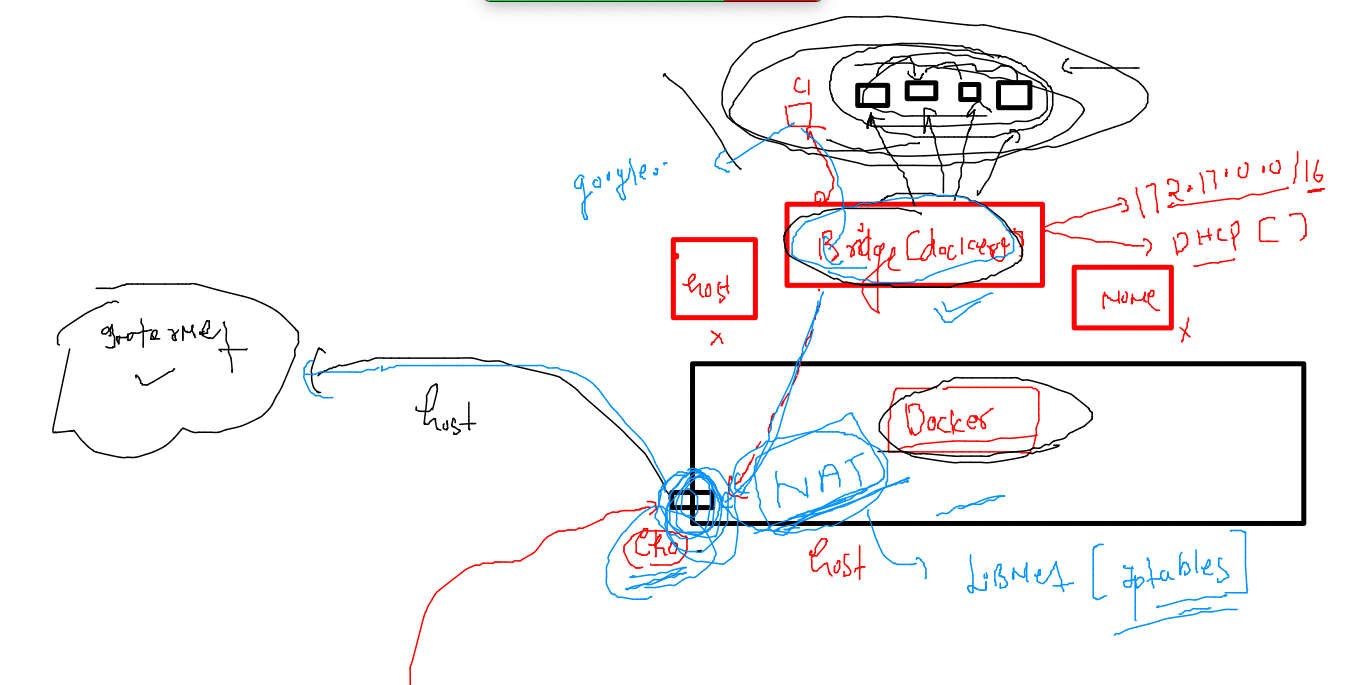 C1
google..
172.17.0.0/16
DHCP [ ]
Bridge [docker0]
host
None
x
x
Internet
host
Docker
NAT
Eth0
host
LibNet [iptables]